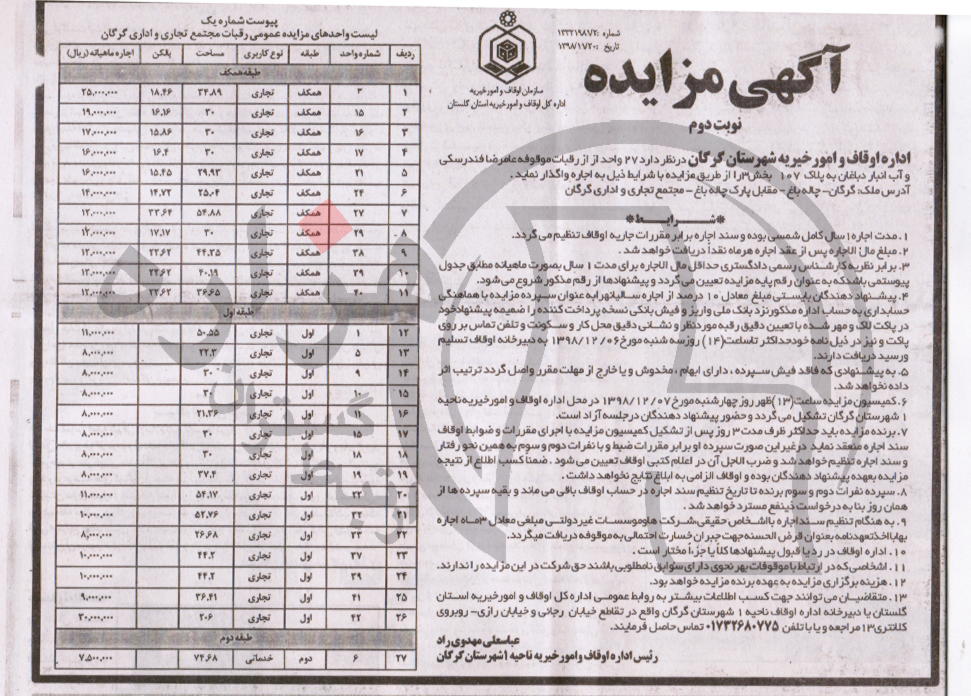 شماره: ۱۳۳۲۱۹۸۷۲
تاریخ: ۱۳۹۸/۱۱/۲۰
سازمان اوقاف و امور خیریه
اداره کل اوقاف و امور خیریه استان گلستان
آگهی مزایده
نوبت دوم
اداره اوقاف و امور خیریه شهرستان گرگان در نظر دارد ۲۷ واحد از از رقبات موقوفه عامرضا فندرسکی
و آب انبار دباغان به پلاک ۱۰۷ بخش ۳ را از طریق مزایده با شرایط ذیل به اجاره واگذار نماید .
آدرس ملک: گرگان- چاله باغ - مقابل پارک چاله باغ - مجتمع تجاری و اداری گرگان
*شرایط*
۱. مدت اجاره ۱ سال کامل شمسی بوده و سند اجاره برابر مقررات جاریه اوقاف تنظیم می گردد.
۲. مبلغ مال الاجاره پس از عقد اجاره هرماه نقداً دریافت خواهد شد .
۳. برابر نظریه کارشناس رسمی دادگستری حداقل مال الاجاره برای مدت ۱ سال بصورت ماهیانه مطابق جدول
پیوستمی باشدکه به عنوان رقم پایه مزایده تعیین می گردد و پیشنهادها از رقم مذکور شروع می شود.
۴. پیشنهاد دهندگان بایستی مبلغ معادل ۱۰ درصد از اجاره سالیانه رابه عنوان سپرده مزایده با هماهنگی
حسابداری به حساب اداره مذکور نزد بانک ملی واریز و فیش بانکی نسخه پرداخت کننده را ضمیمه پیشنهاد خود
در پاکت لاک و مهر شده با تعیین دقیق رقبه مورد نظر و نشانی دقیق محل کار و سکونت و تلفن تماس بر روی
پاکت و نیز در ذیل نامه خود حداکثر تا ساعت (۱۴) روز سه شنبه مورخ ۱۳۹۸/۱۲/۰۶ به دبیرخانه اوقاف تسلیم
ورسید دریافت دارند.
۵. به پیشنهادی که فاقد فیش سپرده ، دارای ابهام ، مخدوش و یا خارج از مهلت مقرر واصل گردد ترتیب اثر
داده نخواهد شد.
۶. کمیسیون مزایده ساعت (۱۳) ظهر روز چهارشنبه مورخ ۱۳۹۸/۱۲/۰۷ در محل اداره اوقاف و امور خیریه ناحیه
۱ شهرستان گرگان تشکیل می گردد و حضور پیشنهاد دهندگان در جلسه آزاد است.
۷. برنده مزایده باید حداکثر ظرف مدت ۳ روز پس از تشکیل کمیسیون مزایده با اجرای مقررات و ضوابط اوقاف
سند اجاره منعقد نماید در غیر این صورت سپرده او برابر مقررات ضبط و با نفرات دوم و سوم به همین نحو رفتار
و سند اجاره تنظیم خواهد شد و ضرب الاجل آن در اعلام کتبی اوقاف تعیین می شود . ضمنا کسب اطلاع از نتیجه
مزایده بعهده پیشنهاد دهندگان بوده و اوقاف الزامی به ابلاغ نتایج نخواهد داشت .
۸. سپرده نفرات دوم و سوم برنده تا تاریخ تنظیم سند اجاره در حساب اوقاف باقی می ماند و بقیه سپرده ها از
همان روز بنا به درخواست ذینفع مسترد خواهد شد.
۹. به هنگام تنظیم سند اجاره با اشخاص حقیقی،شرکت ها و موسسات غیر دولتی مبلغی معادل ۳ ماه اجاره
بها با اخذ تعهدنامه بعنوان قرض الحسنه جهت جبران خسارت احتمالی به موقوفه دریافت میگردد.
۱۰. اداره اوقاف در رد یا قبول پیشنهادها کلاً یا جزءاً مختار است .
۱۱. اشخاصی که در ارتباط با موقوفات بهر نحوی دارای سوابق نامطلوبی باشند حق شرکت در این مزایده را ندارند.
۱۲. هزینه برگزاری مزایده به عهده برنده مزایده خواهد بود.
۱۳. متقاضیان می توانند جهت کسب اطلاعات بیشتر به روابط عمومی اداره کل اوقاف و امور خیریه استان
گلستان یا دبیرخانه اداره اوقاف ناحیه ۱ شهرستان گرگان واقع در تقاطع خیابان رجائی و خیابان رازی- روبروی
کلانتری ۱۳ مراجعه و یا با تلفن ۰۱۷۳۲۶۸۰۷۷۵ تماس حاصل فرمایند.
عباسعلی مهدوی راد
رئیس اداره اوقاف و امور خیریه ناحیه ۱ شهرستان گرگان
پیوست شماره یک
لیست واحدهای مزایده عمومی رقبات مجتمع تجاری و اداری گرگان
ردیف شماره واحد طبقه نوع کاربری مساحت بالکن اجاره ماهیانه (ریال)
طبقه همکف
۱ ۳ همکف تجاری ۳۴.۸۹ ۱۸.۴۶ ۲۵,۰۰۰,۰۰۰
۲ ۱۵ همکف تجاری ۳۰ ۱۶.۱۶ ۱۹,۰۰۰,۰۰۰
۳ ۱۶ همکف تجاری ۳۰ ۱۵.۸۶ ۱۷,۰۰۰,۰۰۰
۴ ۱۷ همکف تجاری ۳۰ ۱۶.۴ ۱۶,۰۰۰,۰۰۰
۵ ۲۱ همکف تجاری ۲۹.۹۳ ۱۵.۴۵ ۱۶,۰۰۰,۰۰۰
۶ ۲۴ همکف تجاری ۲۵.۰۴ ۱۴.۷۲ ۱۴,۰۰۰,۰۰۰
۷ ۲۷ همکف تجاری ۵۴.۸۸ ۳۳.۶۴ ۱۲,۰۰۰,۰۰۰
۸ ۲۹ همکف تجاری ۳۰ ۱۷.۱۷ ۱۲,۰۰۰,۰۰۰
۹ ۳۸ همکف تجاری ۴۴.۳۵ ۲۲.۶۲ ۱۲,۰۰۰,۰۰۰
۱۰ ۳۹ همکف تجاری ۴۰.۱۹ ۲۲.۶۲ ۱۲,۰۰۰,۰۰۰
۱۱ ۴۰ همکف تجاری ۳۶.۶۵ ۲۲.۶۲ ۱۲,۰۰۰,۰۰۰
طبقه اول
۱۲ ۱ اول تجاری ۵۰.۵۵ ۱۱,۰۰۰,۰۰۰
۱۳ ۵ اول تجاری ۲۲.۳ ۸,۰۰۰,۰۰۰
۱۴ ۹ اول تجاری ۳۰ ۸,۰۰۰,۰۰۰
۱۵ ۱۰ اول تجاری ۳۰ ۸,۰۰۰,۰۰۰
۱۶ ۱۱ اول تجاری ۲۱.۳۶ ۸,۰۰۰,۰۰۰
۱۷ ۱۵ اول تجاری ۳۰ ۸,۰۰۰,۰۰۰
۱۸ ۱۸ اول تجاری ۳۰ ۸,۰۰۰,۰۰۰
۱۹ ۱۹ اول تجاری ۳۷.۴ ۸,۰۰۰,۰۰۰
۲۰ ۲۲ اول تجاری ۵۴.۱۷ ۱۱,۰۰۰,۰۰۰
۲۱ ۳۲ اول تجاری ۵۲.۷۶ ۱۰,۰۰۰,۰۰۰
۲۲ ۳۳ اول تجاری ۲۶.۶۸ ۸,۰۰۰,۰۰۰
۲۳ ۳۷ اول تجاری ۴۴.۲ ۱۰,۰۰۰,۰۰۰
۲۴ ۳۹ اول تجاری ۴۴.۲ ۱۰,۰۰۰,۰۰۰
۲۵ ۴۱ اول تجاری ۳۶.۴۱ ۹,۰۰۰,۰۰۰
۲۶ ۴۲ اول تجاری ۲۰۶ ۳۰,۰۰۰,۰۰۰
طبقه دوم
۲۷ ۶ دوم خدماتی ۷۴.۶۸ ۷,۵۰۰,۰۰۰